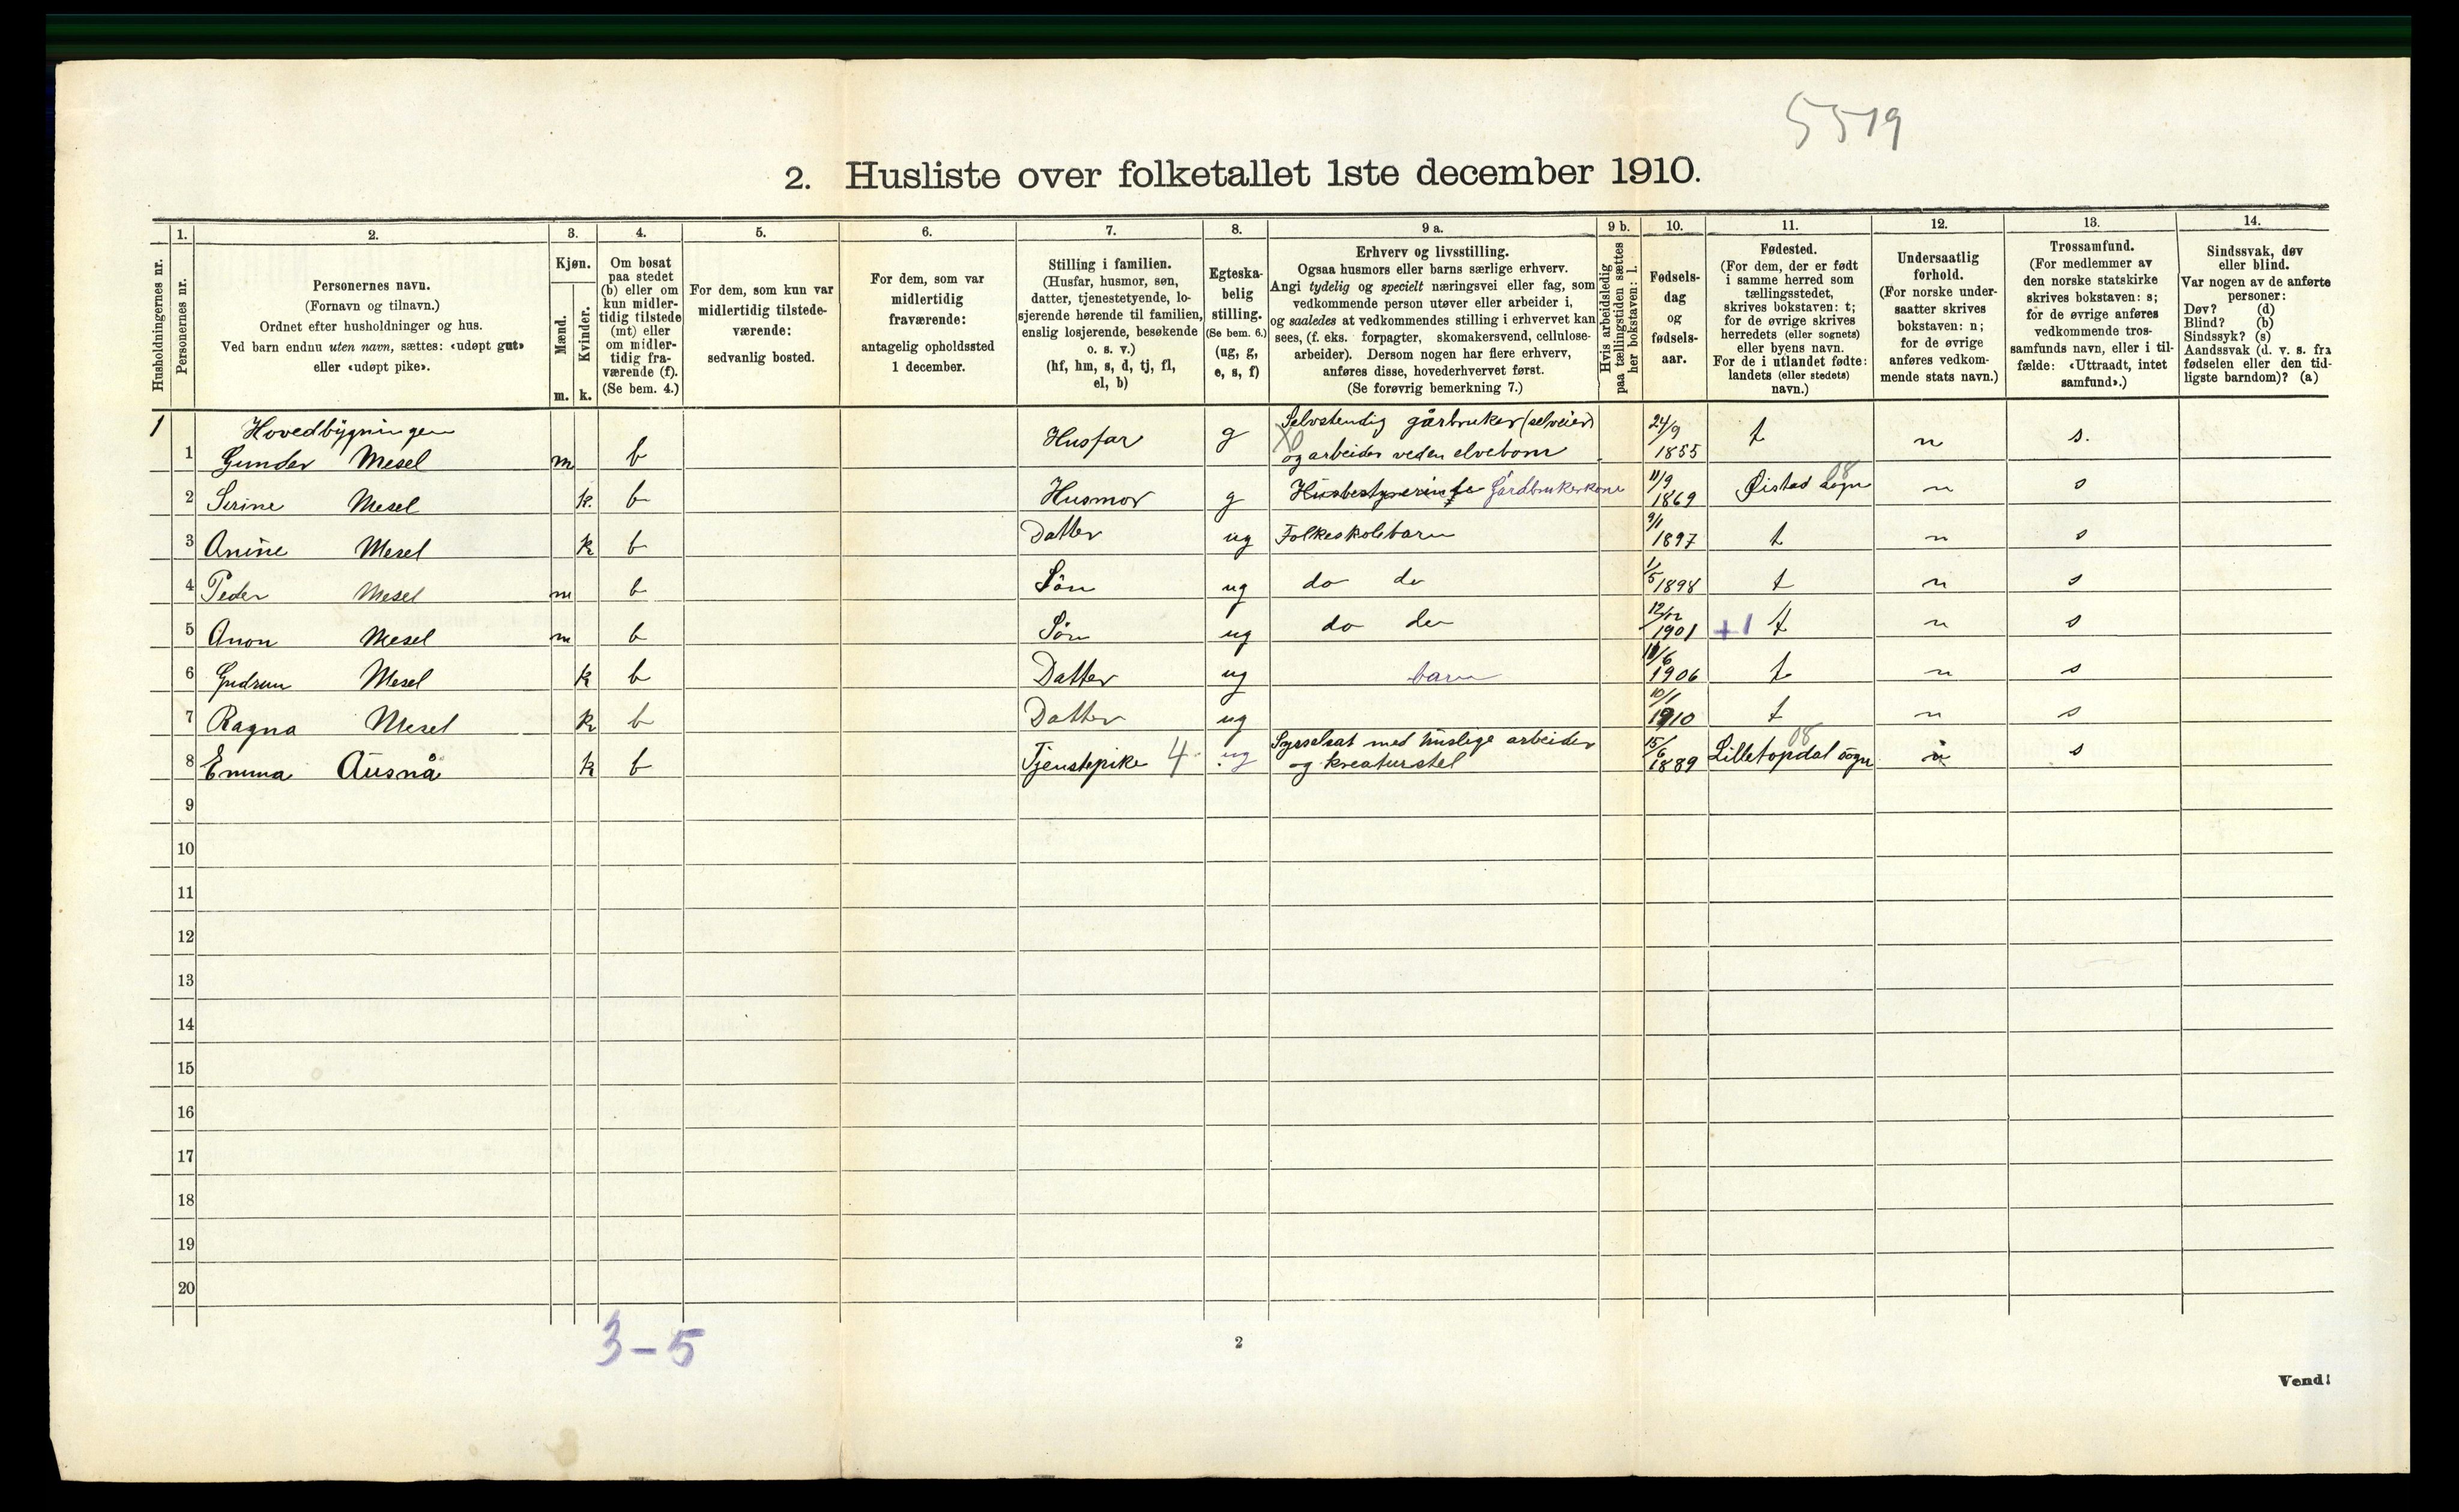 5519
2. Husliste over folketallet 1ste december 1910.
Husholdningernes nr.
1.
Personernes nr.
2.
Personernes navn.
(Fornavn og tilnavn.)
Ordnet efter husholdninger og hus.
Ved barn endnu uten navn, sættes: «udøpt gut»
eller «udøpt pike».
3.
Kjøn.
Mænd.
Kvinder.
m. k.
4.
Om bosat
paa stedet
(b) eller om
kun midler-
tidig tilstede
(mt) eller
om midler-
tidig fra-
værende (f).
(Se bem. 4.)
5.
For dem, som kun var
midlertidig tilstede-
værende:
sedvanlig bosted.
6.
For dem, som var
midlertidig
fraværende:
antagelig opholdssted
1 december.
7.
Stilling i familien.
(Husfar, husmor, søn,
datter, tjenestetyende, lo-
sjerende hørende til familien,
enslig losjerende, besøkende
o. s. v.)
(hf, hm, s, d, tj, fl,
el, b)
8.
Egteska-
belig
stilling.
(Se bem. 6.)
(ug, g,
e, s, f)
9 a.
Erhverv og livsstilling.
Ogsaa husmors eller barns særlige erhverv.
Angi tydelig og specielt næringsvei eller fag, som
vedkommende person utøver eller arbeider i,
og saaledes at vedkommendes stilling i erhvervet kan
sees, (f. eks. forpagter, skomakersvend, cellulose-
arbeider). Dersom nogen har flere erhverv,
anføres disse, hovederhvervet først.
(Se forøvrig bemerkning 7.)
9 b.
Hvis arbeidsledig
paa tællingstiden sættes
her bokstaven: l.
10.
Fødsels-
dag
og
fødsels-
aar.
11.
Fødested.
(For dem, der er født
i samme herred som
tællingsstedet,
skrives bokstaven: t;
for de øvrige skrives
herredets (eller sognets)
eller byens navn.
For de i utlandet fødte:
landets (eller stedets)
navn.)
12.
Undersaatlig
forhold.
(For norske under-
saatter skrives
bokstaven: n;
for de øvrige
anføres vedkom-
mende stats navn.)
13.
Trossamfund.
(For medlemmer av
den norske statskirke
skrives bokstaven: s;
for de øvrige anføres
vedkommende tros-
samfunds navn, eller i til-
fælde: «Uttraadt, intet
samfund».)
14.
Sindssvak, døv
eller blind.
Var nogen av de anførte
personer:
Døv? (d)
Blind? (b)
Sindssyk? (s)
Aandssvak (d. v. s. fra
fødselen eller den tid-
ligste barndom)? (a)
1 Hovedbygningen
1 Gunder Mesel m b Husfar g Selvstendig gårbruker (selveier) og arbeider veden elvebom 24/9 1855 t n s.
2 Serine Mesel k. b Husmor g Husbestyrerinfe Gårdbrukerkone 11/9 1869 Øistad sogn 08 n s
3 Anine Mesel k b Datter ug Folkeskolebarn 9/1 1897 t n s
4 Peder Mesel m b Søn ug do do 1/5 1898 t n s
5 Anon Mesel m b Søn ug do do 12/12 1901 +1 t n s
6 Gudrun Mesel k b Datter ug barn 11/6 1906 t n s
7 Ragna Mesel k b Datter ug 10/1 1910 t n s
8 Emma Ausnå k b Tjenstepike 4 ug Sysselsat med huslige arbeider og kreaturstel 15/6 1889 Lilletopdal sogn 08 n s
9
10
11
12
13
14
15
16
17
18
19
20
3-5
2
Vend!